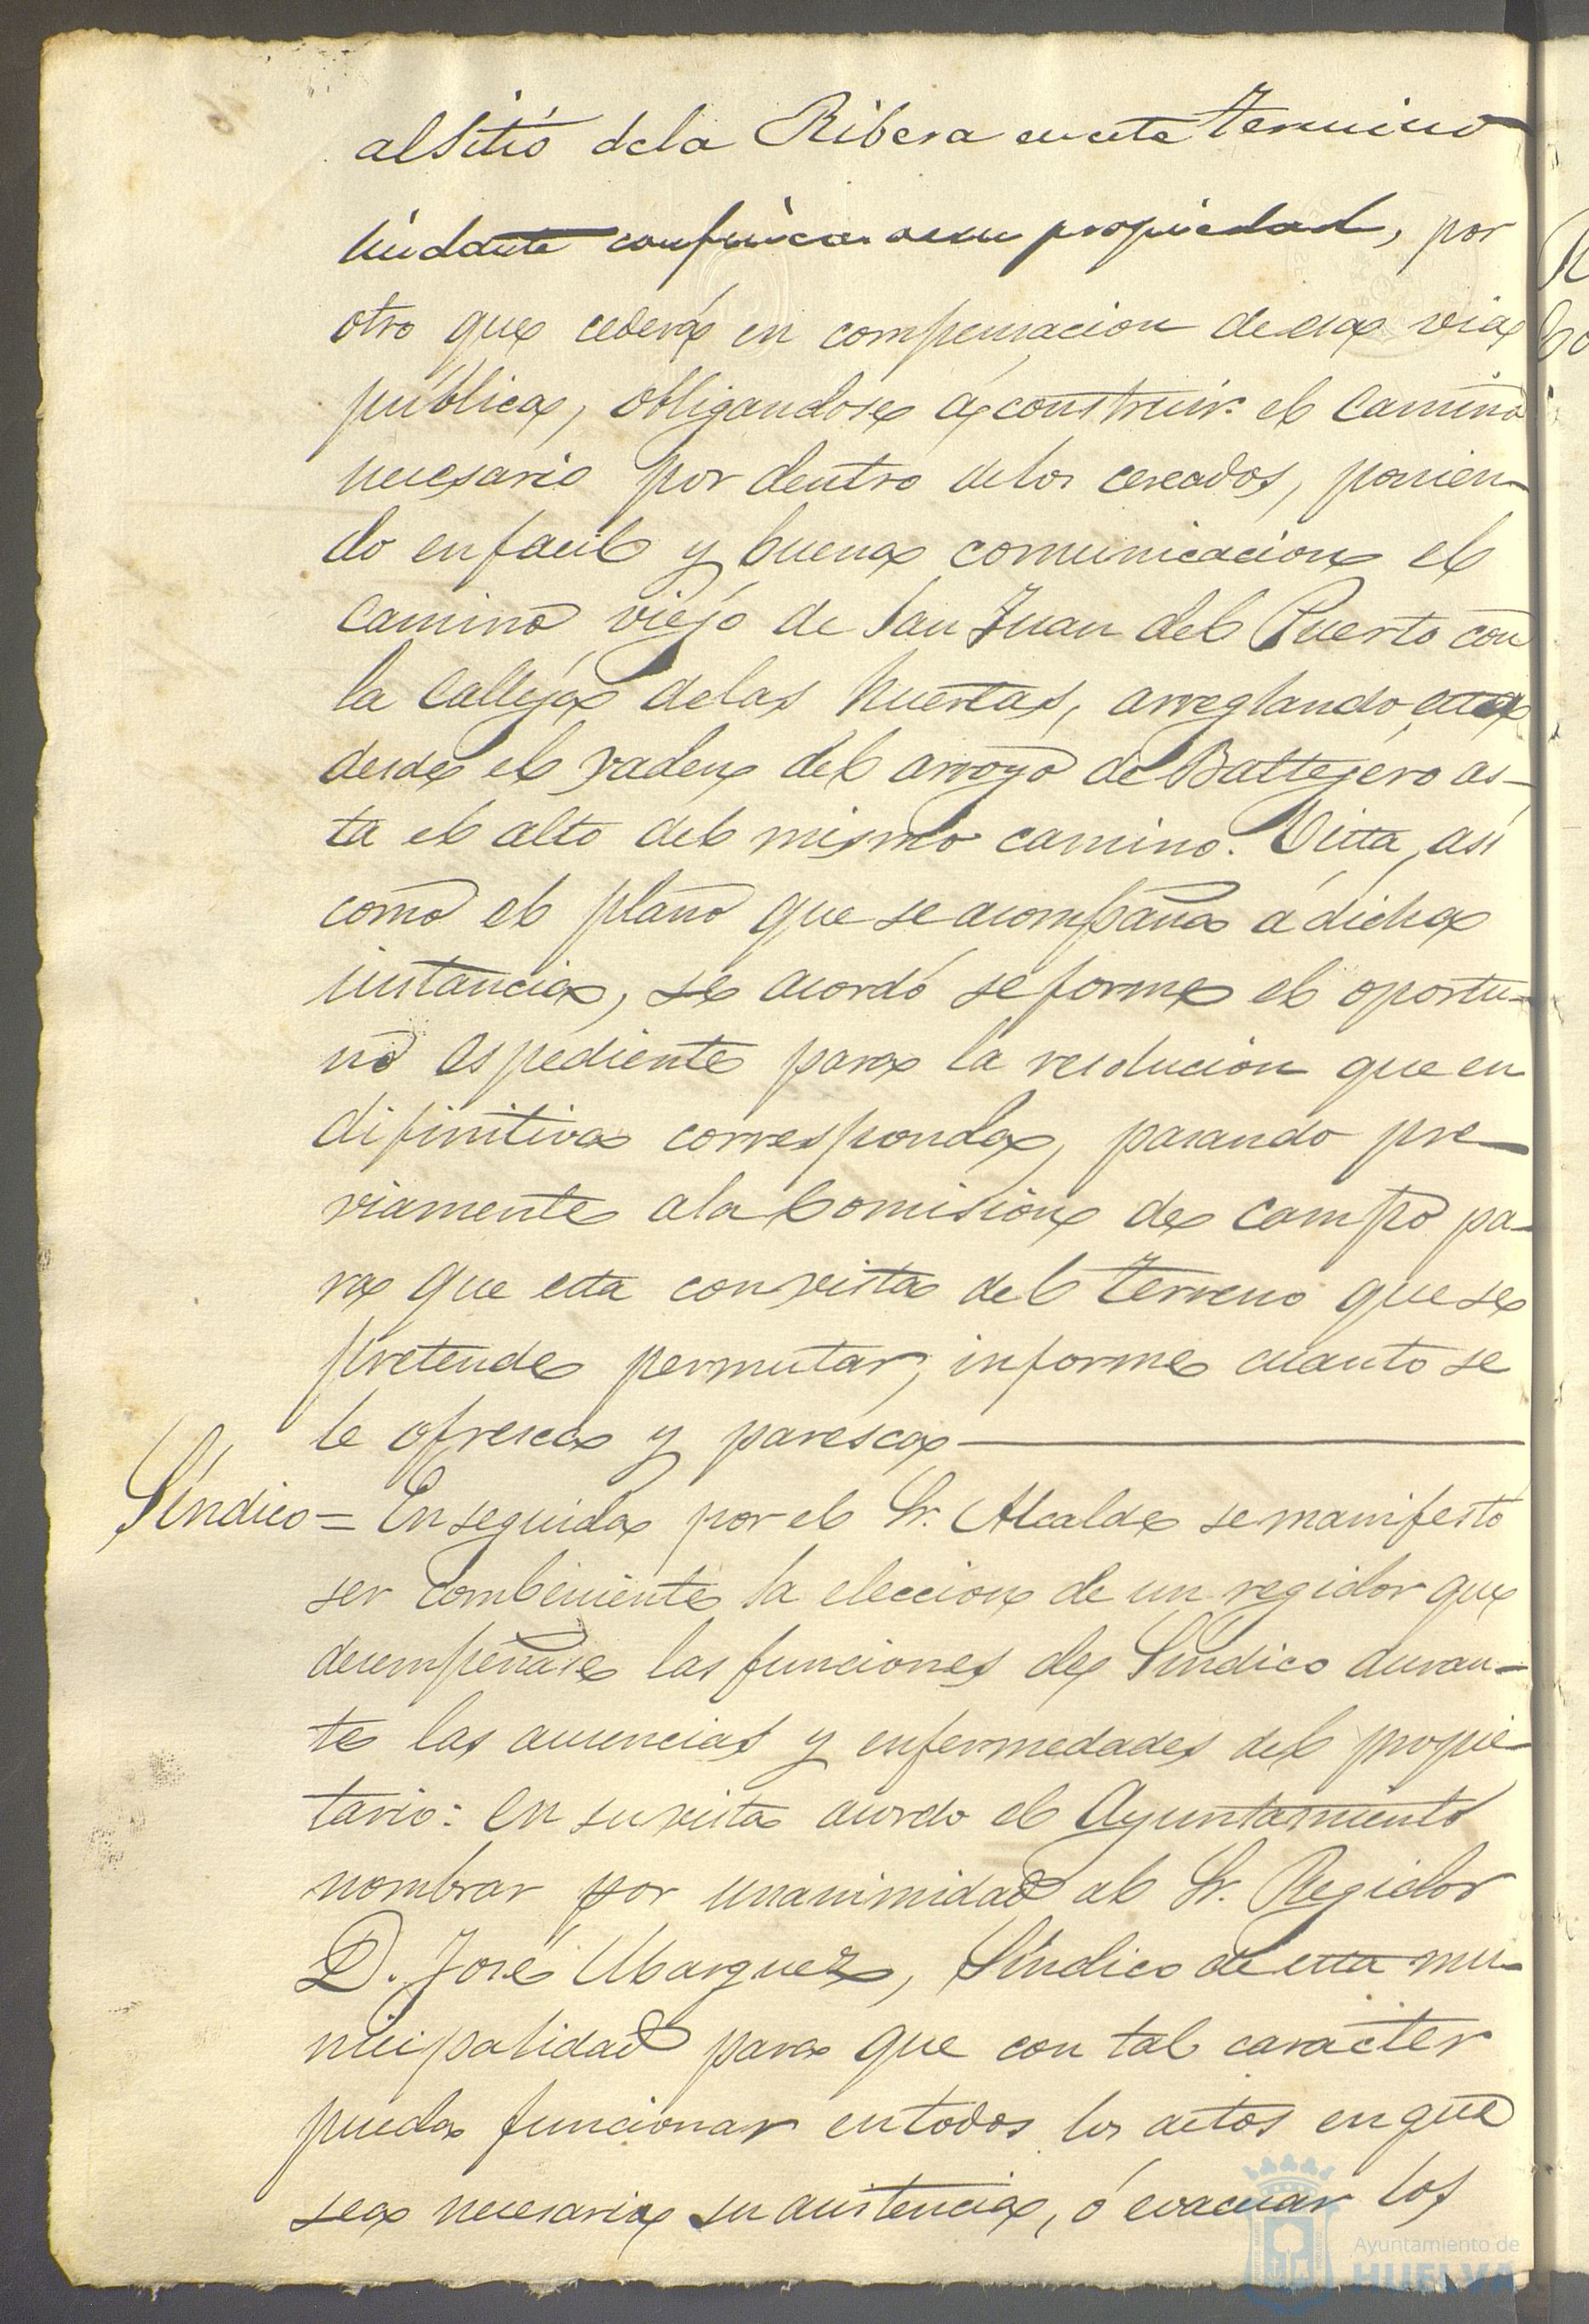 al sitio de la Ribera en este termino
lindante con finca de su propiedad, por
otro que cederá en compensacion de esa via
pública, obligandose á construir el camino
necesario por dentro de los cercados, ponien-
do en facil y buena comunicacion el
camino viejo de San Juan del Puerto con
la calleja de las huertas, arreglando esta
desde el vaden del arroyo de Ballejero as-
ta el alto del mismo camino. Vista, asi
como el plano que se acompaña á dicha
instancia, se acordó se forme el oportu-
no espediente para la resolucion que en
difinitiva corresponda, pasando pre-
viamente a la Comision de campo pa-
ra que esta con vista del terreno que se
pretende permutar, informe cuanto se
le ofresca y paresca
Síndico = En seguida por el Sr. Alcalde se manifesto
ser combeniente la eleccion de un regidor que
desempeñase las funciones de Síndico duran-
te las ausencias y enfermedades del propie-
tario: en su vista acordo el Ayuntamiento
nombrar por unanimidad al Sr. Regidor
D. José Marquez, Síndico de esta mu-
nicipalidad para que con tal caracter
pueda funcionar en todos los actos en que
sea necesaria su asistencia, ó evacuar los
Ayuntamiento de
HUELVA